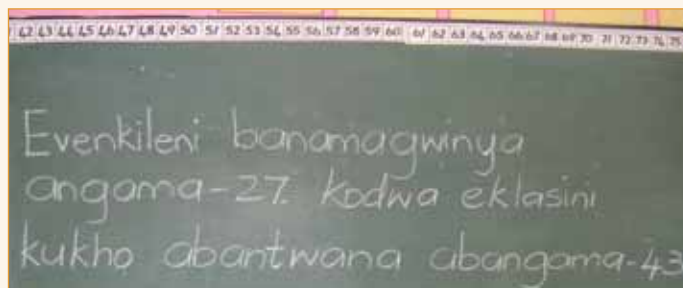 42 43 44 45 46 47 48 49 50 51 52 53 54 55 56 57 58 59 60 61 62 63 64 65 66 67 68 69 70 71 72 73 74 75
Evenkileni banamagwinya
angama-27. kodwa eklasini
kukho abantwana abangama-43